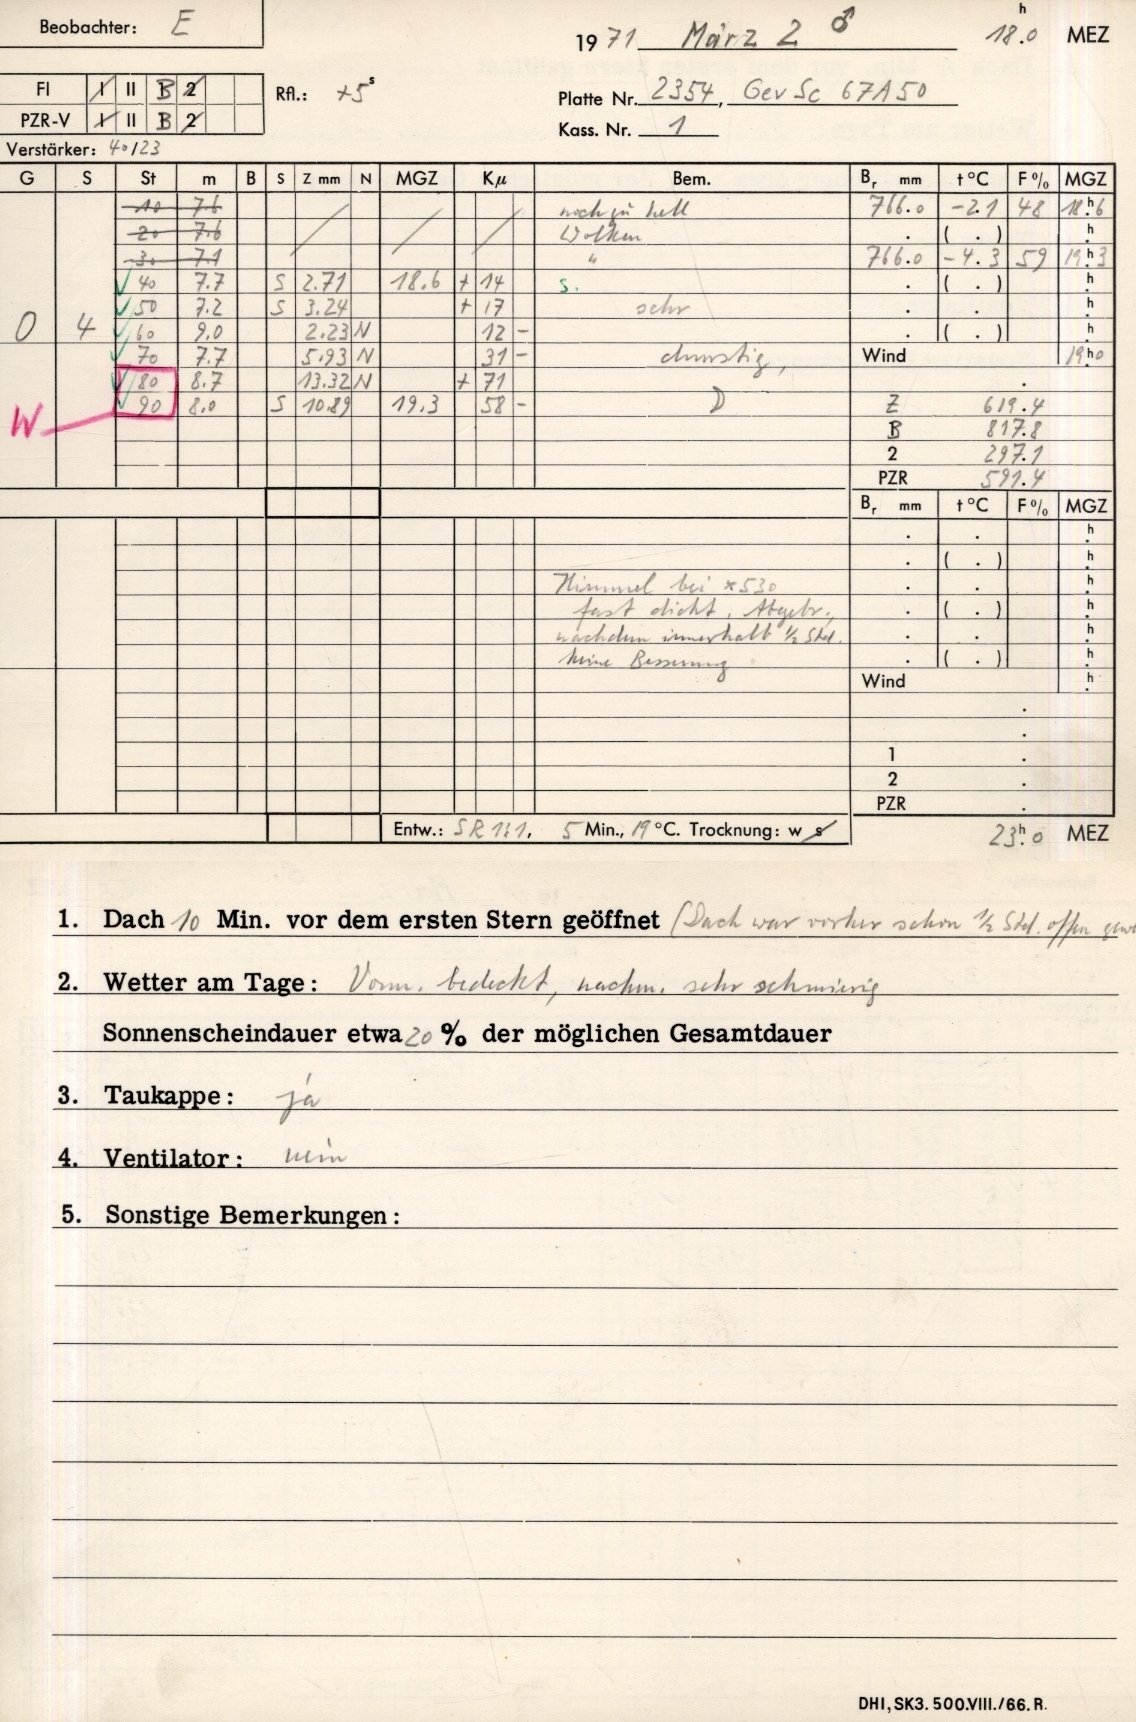 Beobachter: E
1971 März 2 ♂ 18.0 h MEZ
FI I II B 2
Rfl.: +5 s
Platte Nr. 2354, Gev Sc 67A50
PZR-V I II B 2
Kass. Nr. 1
Verstärker: 40/23
G S St m B S Z mm N MGZ Kµ Bem. Br mm t °C F % MGZ
10 7.6 noch zu hell 766.0 -2.1 48 18.h6
20 7.6 Wolken . ( . ) h
30 7.1 " 766.0 -4.3 59 19.h3
40 7.7 S 2.71 18.6 + 14 s. . ( . ) h
50 7.2 S 3.24 + 17 sehr . . h
0 4 60 9.0 2.23 N 12 - . ( . ) h
70 7.7 5.93 N 31 - dunstig, Wind 19h0
80 8.7 13.32 N + 71 .
W 90 8.0 S 10.89 19.3 58 - D Z 619.4
B 817.8
2 297.1
PZR 591.4
Br mm t °C F % MGZ
. . h
. ( . ) h
Himmel bei *530 . . h
fast dicht. Abgebr., . ( . ) h
nachdem innerhalb 1/2 Std. . . h
keine Besserung . ( . ) h
Wind h
.
.
1 .
2 .
PZR .
Entw.: SR 1:1, 5 Min., 19 °C. Trocknung: w s
23.h0 MEZ
1. Dach 10 Min. vor dem ersten Stern geöffnet (Dach war vorher schon 1/2 Std. offen gewe
2. Wetter am Tage: Vorm. bedeckt, nachm. sehr schmierig
Sonnenscheindauer etwa 20 % der möglichen Gesamtdauer
3. Taukappe: ja
4. Ventilator: nein
5. Sonstige Bemerkungen:
DHI, SK3. 500.VIII./66. R.